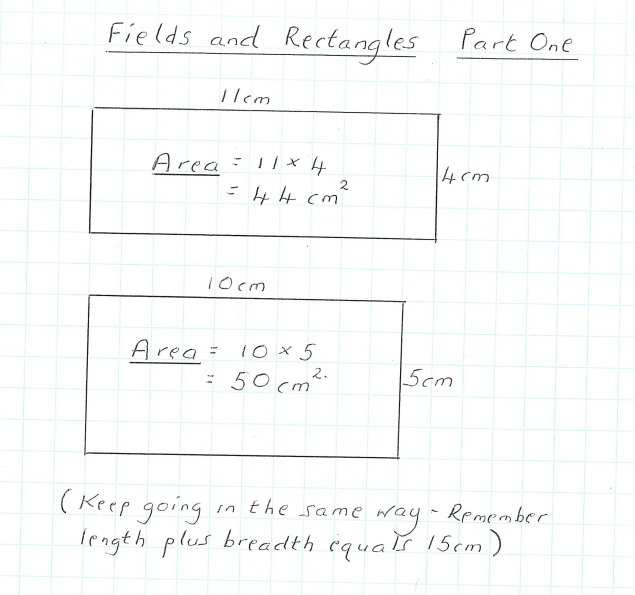 Fields and Rectangles Part One
11cm
Area = 11 × 4
= 44 cm²
4cm
10cm
Area = 10 × 5
= 50 cm².
5cm
(Keep going in the same way - Remember
length plus breadth equals 15cm)